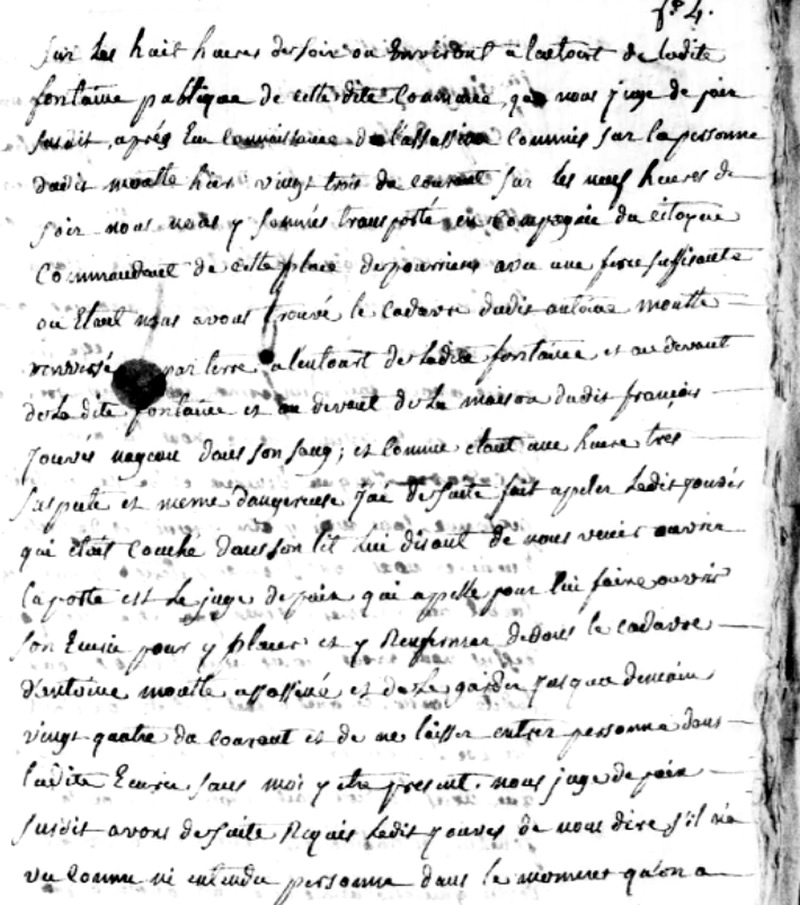 f.° 4.
sur les huit heures de soir ou Environt à lentourt de ladite
fontaine publique de cette dite Commune, que nous juge de paix
susdit, après En connaissance de l'assassin Commis sur la personne
dudit moutte hier vingt trois du courant sur les neuf heures de
soir nous nous y sommes transporté en compagnie du citoyen
Commandant de cette place de pourrieres avec une force suffisante
ou Etant nous avons trouvé le cadavre dudit antoine moutte
renversé par terre à lentourt de Ladite fontaine et au devant
de La dite fontaine et au devant de La maison dudit françois
jouvés nageau dans son sang; et comme etant une heure tres
suspecte et meme dangereuse J'ai de suite fait apeler Ledit jouvés
qui etait couché dans son lit lui disant de nous venir ouvrir
la porte est Le juge de paix qui apelle pour lui faire ouvrir
son Ecurie pour y placer et y Renfermer dedans le cadavre
d'antoine moutte assassiné et de Le garder jusques demain
vingt quatre du courant et de ne laisser entrer personne dans
ladite Ecurie sans moi y etre present. nous juge de paix
susdit avons de suite Requis Ledit jouves de nous dire s'il n'a
vu connu ni entendu personne dans le moment qu'on a